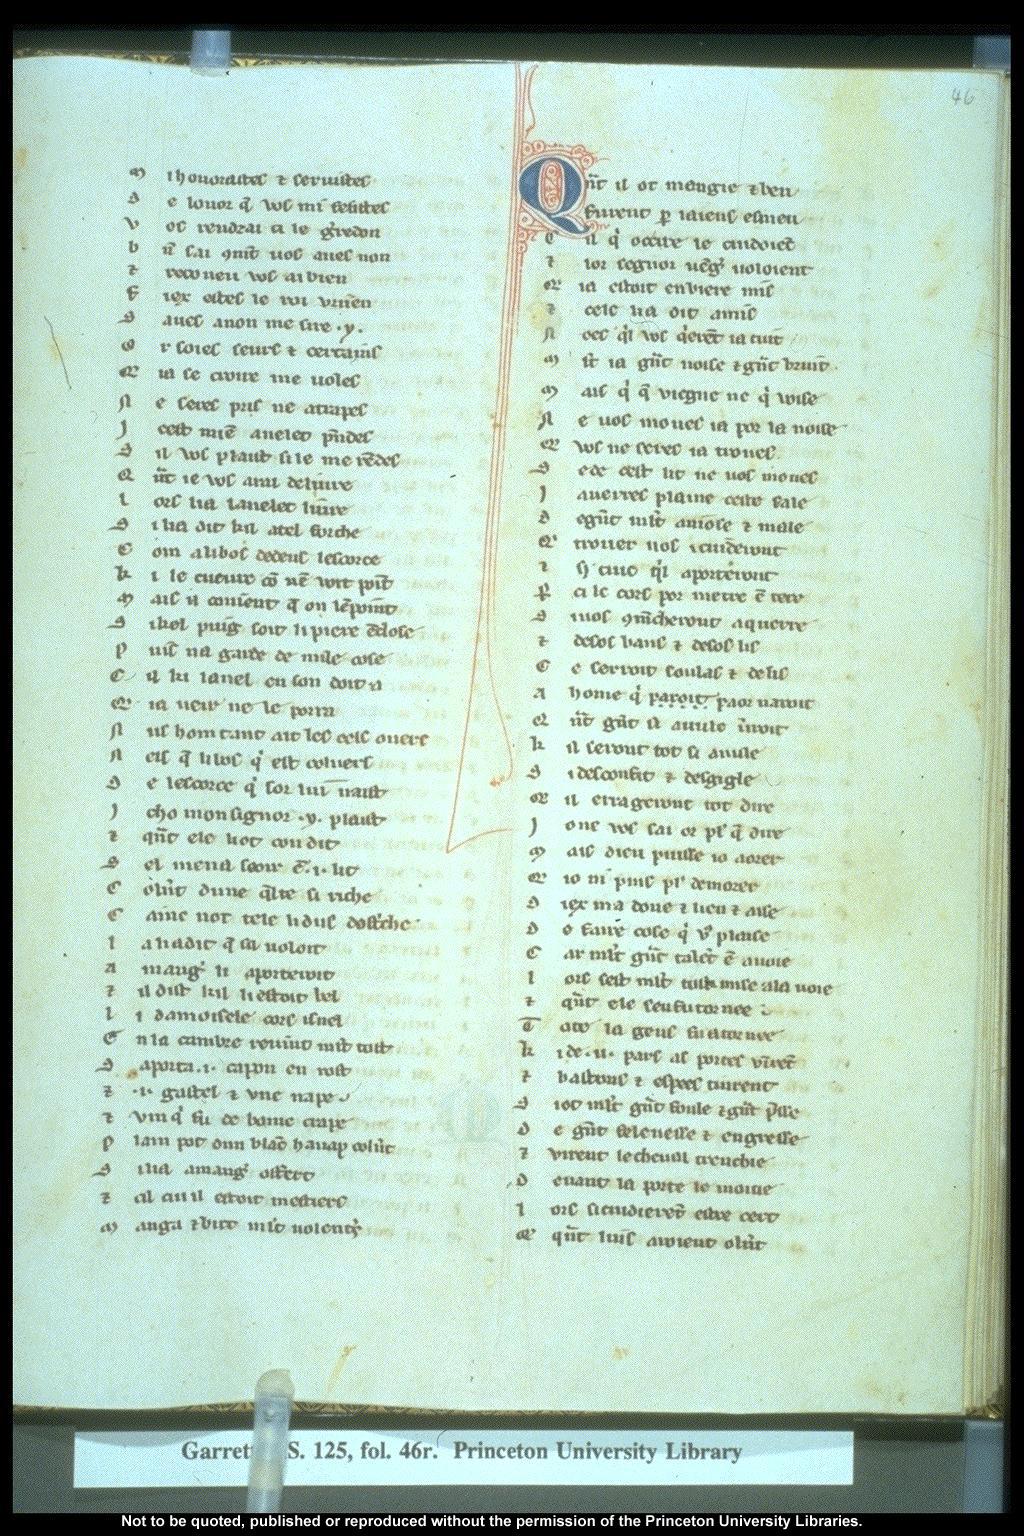 46
M i honorastes & seruistes
D e lonor q̄ vos mi feistes
V os rendrai ci le g̃redon
B n̄ sai 9mēt uos aues non
& reconeu vos ai bien
F iex estes le roi vrien
S aues a non me sire .y.
O r soies seurs & certains
Q ia se croire me uoles
N e seres pris ne atrapes
J cest mien anelet pn̄des
S il vos plaist si le me rēdes
Q n̄t ie vos arai deliure
L ors li a lanelet liure
S i li a dit kil a tel force
C om a li bos dedens lescorce
K i le cueure cō nē voit point
M ais il couient q̄ on lēpoint
S i kel puīg soit li piere ēclose
P uis na garde de nule cose
C il ki lanel en son doit a
Q ia veir ne le porra
N us hom tant ait les oels ouers
N eis q̄ li bos q̍ est couers
D e lescorce q̍ sor lui naist
J cho mon signor .y. plaist
& qn̄t ele li ot con dit
S el mena seoir ē .i. lit
C olūt dune qlte si riche
C ainc not tele li dus dostriche
L a li a dit q̄ sil uoloit
A mangier li aporteroit
& il dist kil li estoit bel
L i damoisele cort isnel
E n la cambre reuint mlt tost
S aporta .i. capon en rost
& .i. gastel & vne nape
& vin q̍ fu de bone crape
P lain pot dun blanc hanap colūt
S i li a a mangier offert
& cil cui il estoit mestiers
M anga & but mlt uolentiers
Qn̄t il ot mengie & beu
Furent par laiens esmeu
C il q̍ ocirre le cuidoient
& lor segnor uengier uoloient
Q ia estoit en biere mis
& cele li a dit amis
N oes q̍l vos q̍erēt ia tuit
M lt ia gn̄t noise & gn̄t bruit.
M ais q̍ q̄ viegne ne q̍ voise
N e uos moues ia por la noise
Q vos ne seres ia troues
S e de cest lit ne uos moues
J a uerres plaine ceste sale
D e gent mlt anuiose & male
Q trouer uos i cuideront
& si cuic q̍l aporteront
P ar ci le cors por metre ē tere
S i uos 9mēcheront a querre
& desos bans & desos lis
C e seroit soulas & delis
A home q̍ paor naroit
Q n̄t gent si auule uerroit
K il seront tot si auule
S i desconfit & desgigle
Q il errageront tot dire
J one vos sai or pl̍ q̄ dire
M ais dieu puisse io aorer
Q io ni puis pl̍ demorer
D iex ma done & lieu & aise
D e faire cose q̍ v9 plaise
C ar mlt gn̄t talēt ē auoie
L ors sest mlt tost mise a la uoie
& qn̄t ele sen fu tornee
T ote la gens fu atornee
K i de .ii. pars as portes vinrēt
& bastons & espees tinrent
S iot mlt gn̄t foule & gn̄t presse
D e gent felenesse & engresse
& virent le cheual trenchie
D euant la porte le moitie
L ors si cuidierent estre cert
Q qn̄t luis aroient olūt
Garrett MS. 125, fol. 46r. Princeton University Library
Not to be quoted, published or reproduced without the permission of the Princeton University Libraries.